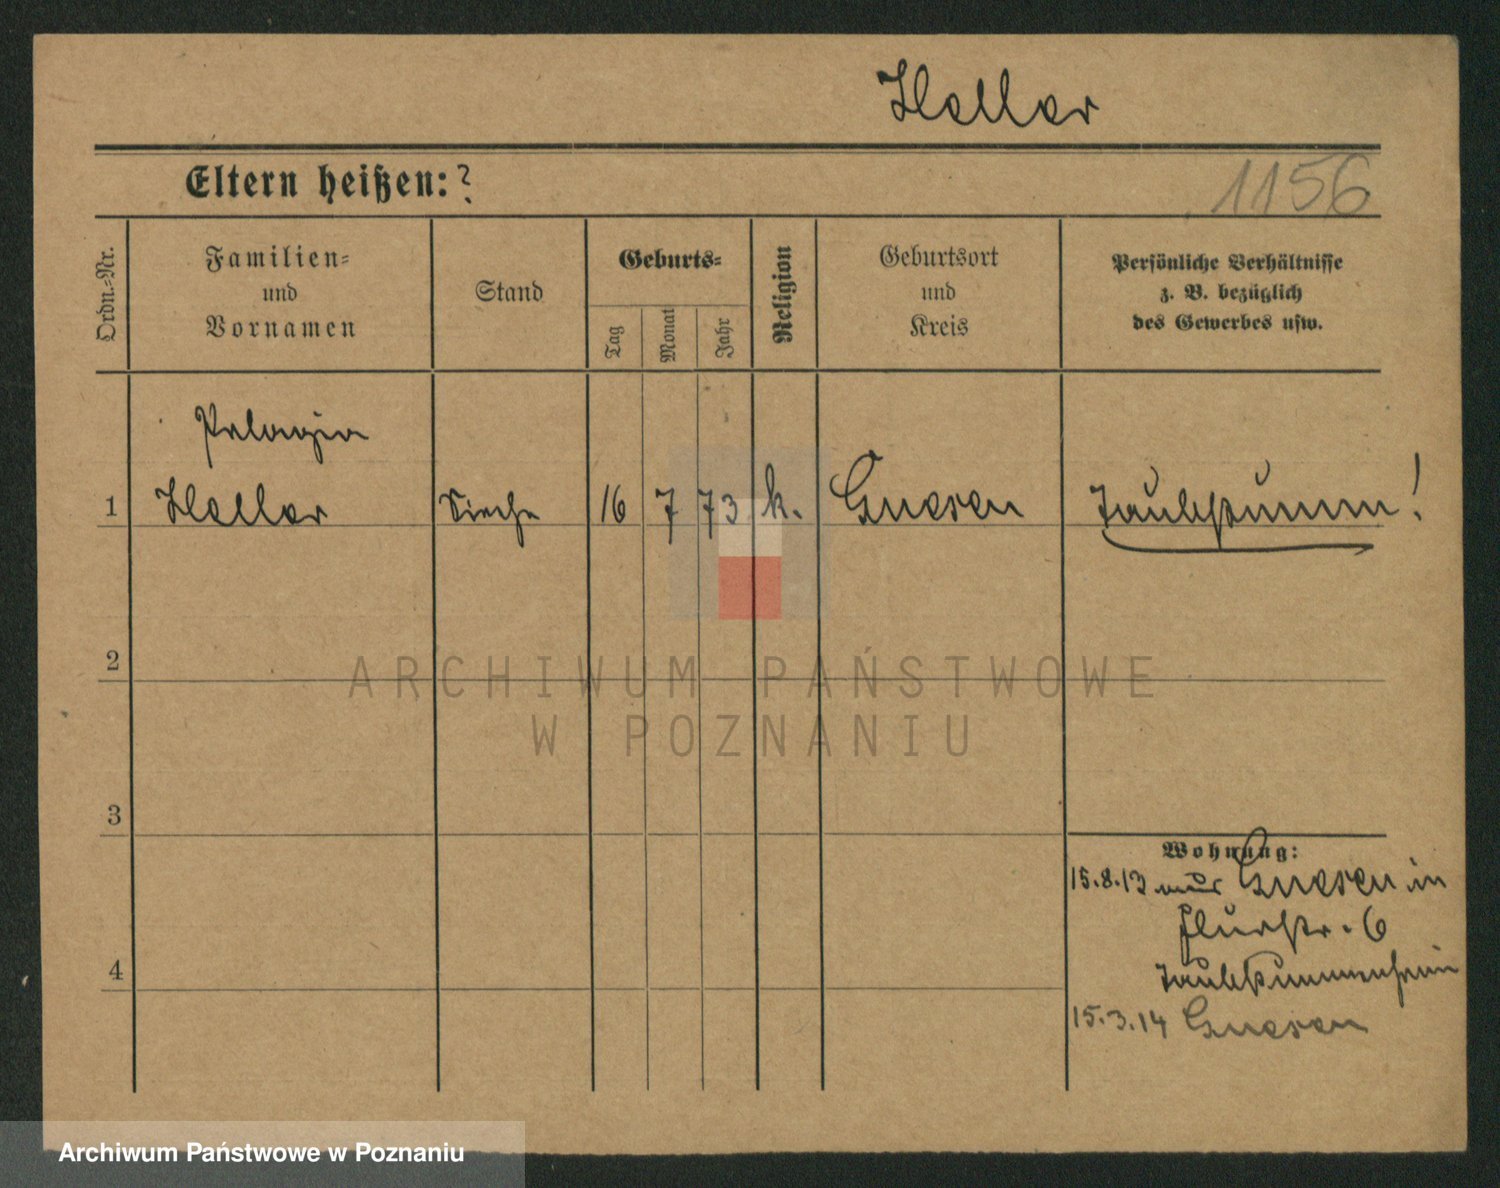 Heller
Eltern heißen: ?
1156
Ordn.-Nr.
Familien-
und
Vornamen
Stand
Geburts-
Tag
Monat
Jahr
Religion
Geburtsort
und
Kreis
Persönliche Verhältnisse
z. B. bezüglich
des Gewerbes usw.
Pelagia
1 Heller 16 7 73 k. Gnesen Taubstumm!
2
ARCHIWUM PAŃSTWOWE
W POZNANIU
3
Wohnung:
15.8.13 aus Gnesen in
Flurstr. 6
4 Taubstummenheim
15.3.14 Gnesen
Archiwum Państwowe w Poznaniu